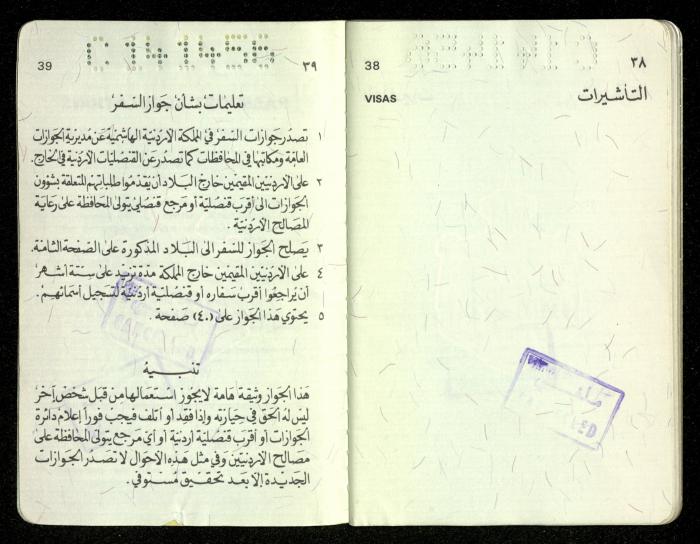 39
C 141456
٣٩
تعليمات بشأن جواز السفر
١ تصدر جوازات السفر في المملكة الأردنية الهاشمية عن مديرية الجوازات
العامة ومكاتبها في المحافظات كما تصدر عن القنصليات الأردنية في الخارج.
٢ على الأردنيين المقيمين خارج البلاد أن يقدموا طلباتهم المتعلقة بشؤون
الجوازات الى أقرب قنصلية أو مرجع قنصلي يتولى المحافظة على رعاية
المصالح الأردنية .
٣ يصلح الجواز للسفر الى البلاد المذكورة على الصفحة الثامنة.
٤ على الأردنيين المقيمين خارج المملكة مدة تزيد على ستة أشهر
أن يراجعوا أقرب سفاره او قنصلية أردنية لتسجيل أسمائهم.
٥ يحتوي هذا الجواز على (٤٠) صفحة .
تنبيه
هذا الجواز وثيقة هامة لا يجوز استعمالها من قبل شخص آخر
ليس له الحق في حيازته وإذا فقد أو أتلف فيجب فوراً إعلام دائرة
الجوازات أو أقرب قنصلية اردنية أو أي مرجع يتولى المحافظة على
مصالح الأردنيين وفي مثل هذه الأحوال لا تصدر الجوازات
الجديدة إلا بعد تحقيق مستوفي.
38
٣٨
VISAS
التأشيرات